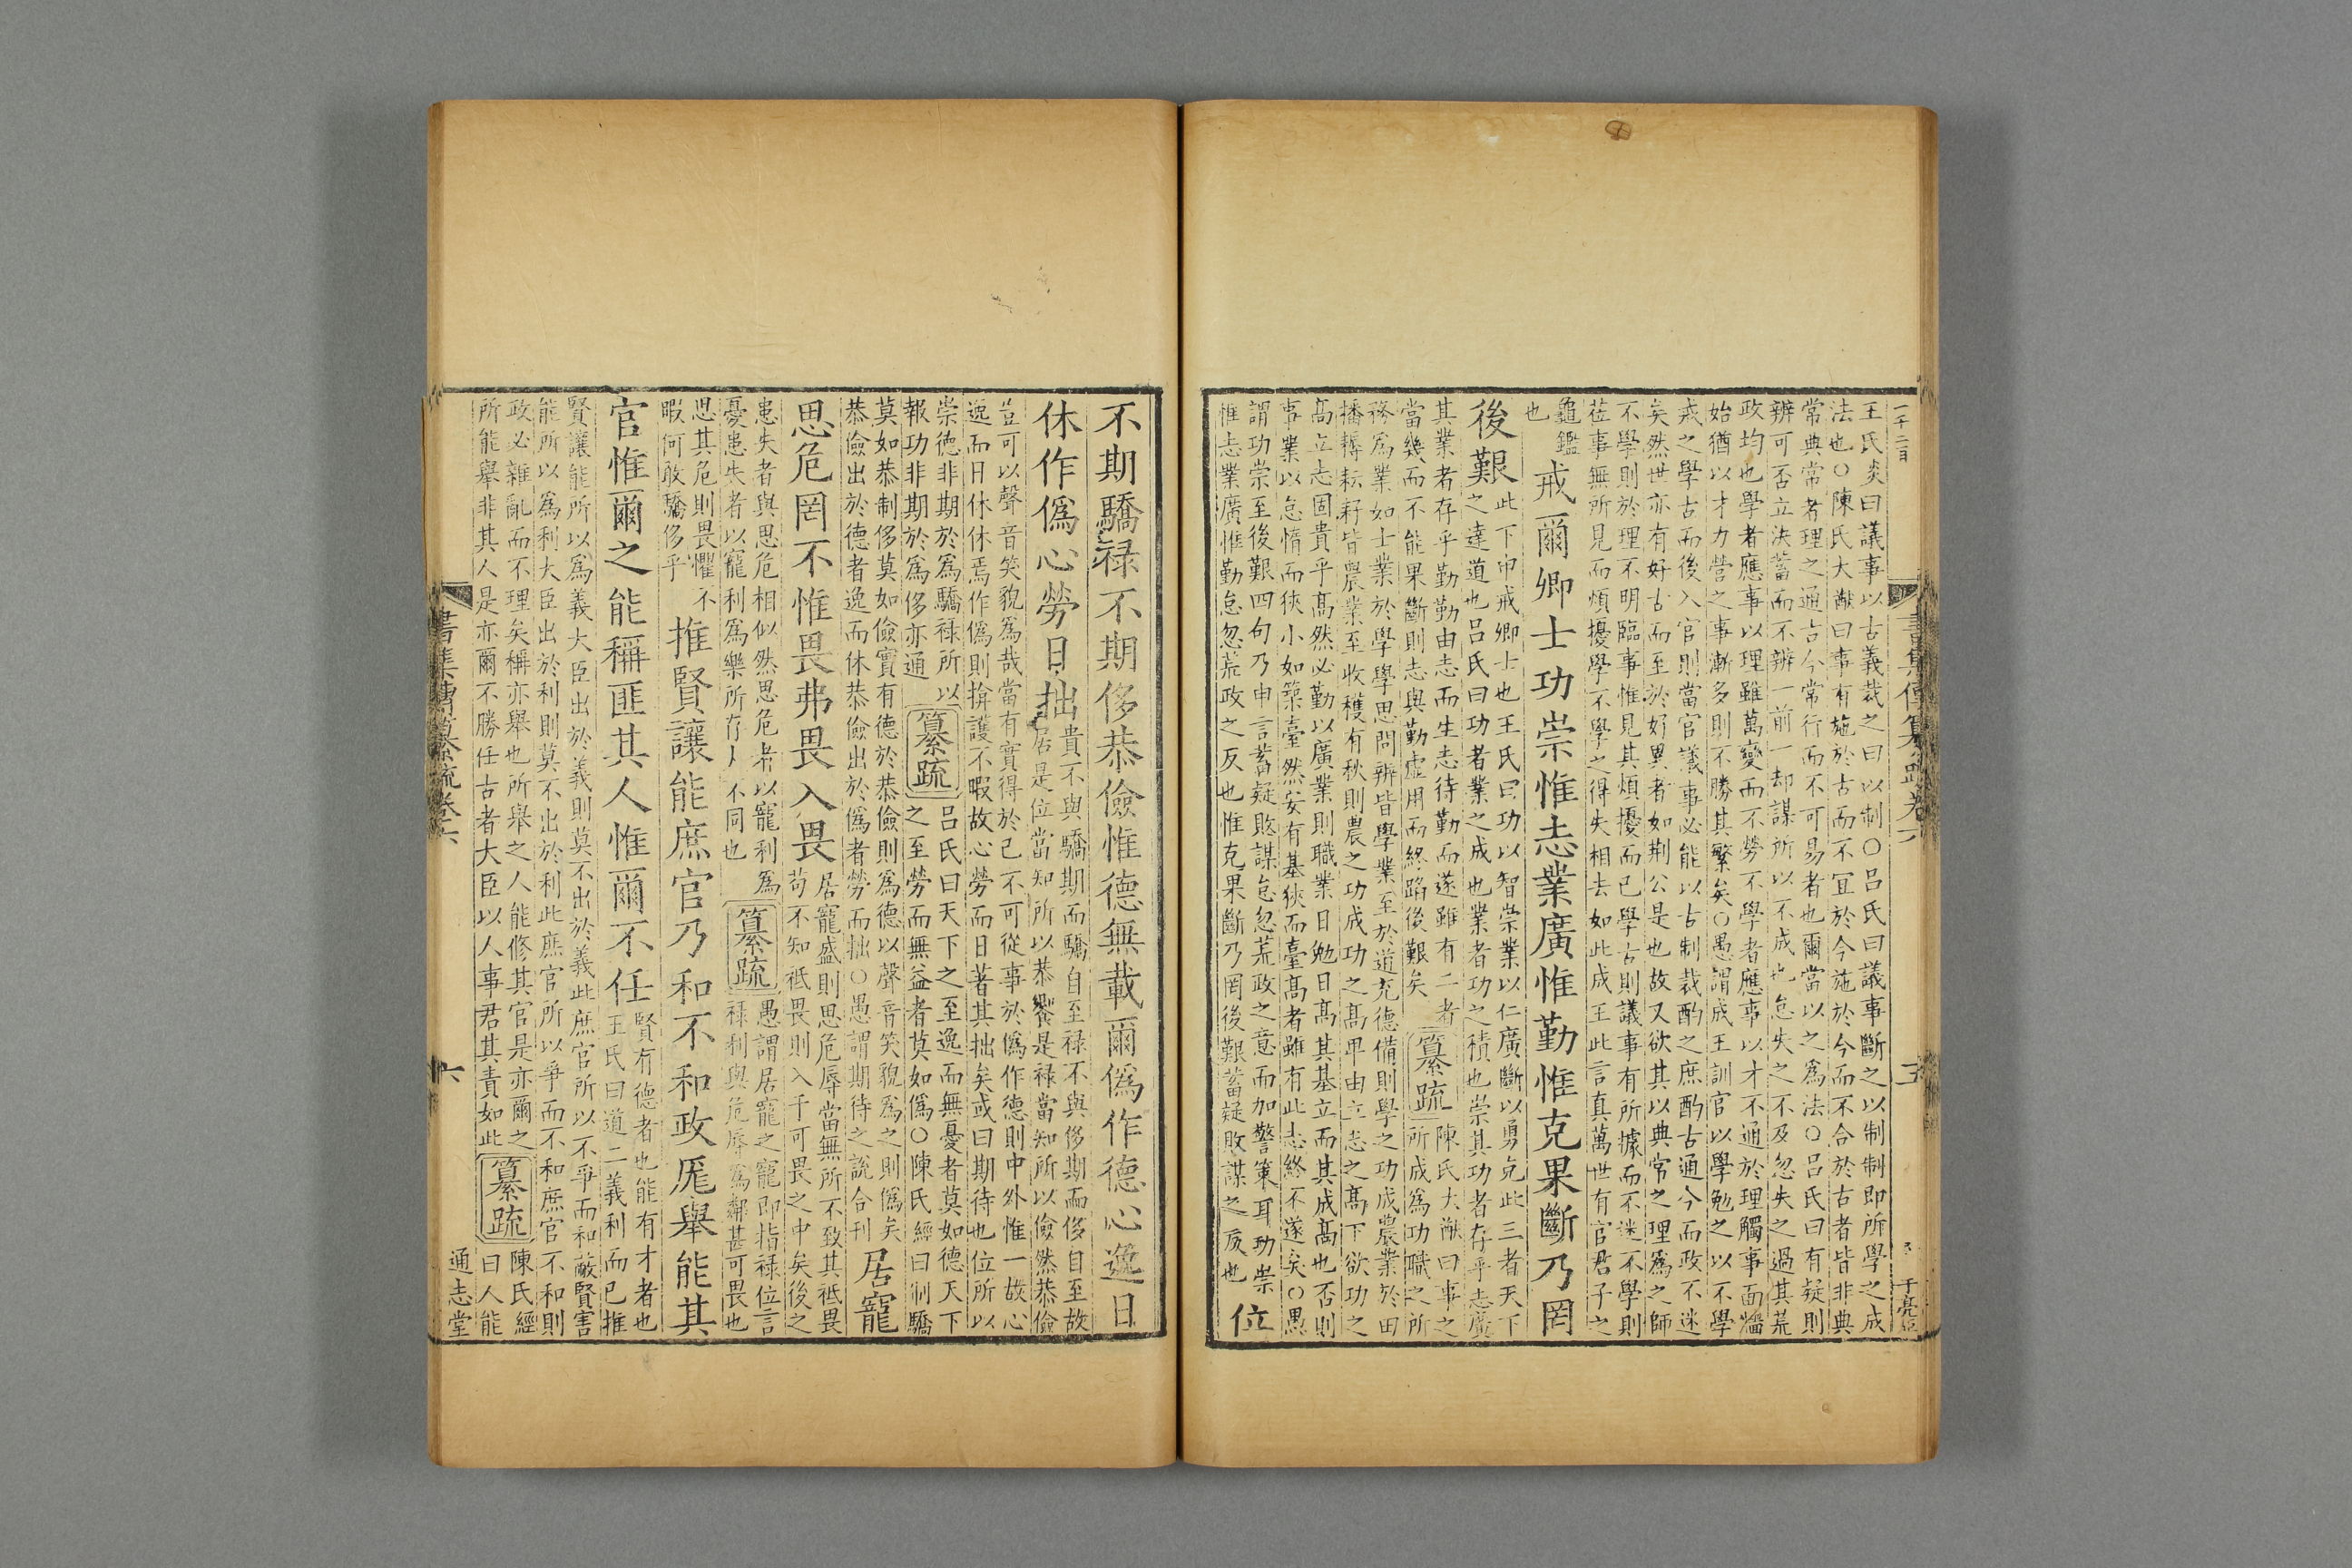 一千二百
書集傳纂疏卷六
五
王氏炎曰議事以古義裁之曰以制○呂氏曰議事斷之以制制即所學之成
法也○陳氏大猷曰事有施於古而不宜於今施於今而不合於古者皆非典
常典常者理之通古今常行而不可易者也爾當以之爲法○呂氏曰有疑則
辨可否立決蓄而不辨一前一却謀所以不成也怠失之不及忽失之過其荒
政均也學者應事以理雖萬變而不勞不學者應事以才不通於理觸事面牆
始猶以才力營之事漸多則不勝其繁矣○愚謂成王訓官以學勉之以不學
戒之學古而後入官則當官議事必能以古制裁酌之庶酌古通今而政不迷
矣然世亦有好古而至於好異者如荆公是也故又欲其以典常之理爲之師
不學則於理不明臨事惟見其煩擾而已學古則議事有所據而不迷不學則
莅事無所見而煩擾學不學之得失相去如此成王此言真萬世有官君子之
龜鑑
也
戒爾卿士功崇惟志業廣惟勤惟克果斷乃罔
後艱
此下申戒卿士也王氏曰功以智崇業以仁廣斷以勇克此三者天下
之達道也呂氏曰功者業之成也業者功之積也崇其功者存乎志廣
其業者存乎勤勤由志而生志待勤而遂雖有二者
當幾而不能果斷則志與勤虛用而終蹈後艱矣
纂疏
陳氏大猷曰事之
所成爲功職之所
務爲業如士業於學學思問辨皆學業至於道充德備則學之功成農業於田
播耨耘耔皆農業至收穫有秋則農之功成功之髙卑由立志之髙下欲功之
髙立志固貴乎髙然必勤以廣業則職業日勉日髙其基立而其成髙也否則
事業以怠惰而狹小如築臺然安有基狹而臺髙者雖有此志終不遂矣○愚
謂功崇至後艱四句乃申言蓄疑敗謀怠忽荒政之意而加警策耳功崇
惟志業廣惟勤怠忽荒政之反也惟克果斷乃罔後艱蓄疑敗謀之反也
位
不期驕禄不期侈恭儉惟德無載爾僞作德心逸日
休作僞心勞日拙
貴不與驕期而驕自至禄不與侈期而侈自至故
居是位當知所以恭饗是禄當知所以儉然恭儉
豈可以聲音笑貌爲哉當有實得於己不可從事於僞作德則中外惟一故心
逸而日休休焉作僞則揜護不暇故心勞而日著其拙矣或曰期待也位所以
崇德非期於爲驕禄所以
報功非期於爲侈亦通
纂疏
呂氏曰天下之至逸而無憂者莫如德天下
之至勞而無益者莫如僞○陳氏經曰制驕
莫如恭制侈莫如儉實有德於恭儉則爲德以聲音笑貌爲之則僞矣
恭儉出於德者逸而休恭儉出於僞者勞而拙○愚謂期待之説合刊
居寵
思危罔不惟畏弗畏入畏
居寵盛則思危辱當無所不致其祗畏
苟不知祗畏則入于可畏之中矣後之
患失者與思危相似然思危者以寵利爲
憂患失者以寵利爲樂所存大不同也
纂疏
愚謂居寵之寵即指禄位言
禄利與危辱爲鄰甚可畏也
思其危則畏懼不
暇何敢驕侈乎
推賢讓能庶官乃和不和政厖舉能其
官惟爾之能稱匪其人惟爾不任
賢有德者也能有才者也
王氏曰道二義利而已推
賢讓能所以爲義大臣出於義則莫不出於義此庶官所以不爭而和蔽賢害
能所以爲利大臣出於利則莫不出於利此庶官所以爭而不和庶官不和則
政必雜亂而不理矣稱亦舉也所舉之人能修其官是亦爾之
所能舉非其人是亦爾不勝任古者大臣以人事君其責如此
纂疏
陳氏經
曰人能
書集傳纂疏卷六
六
通志堂